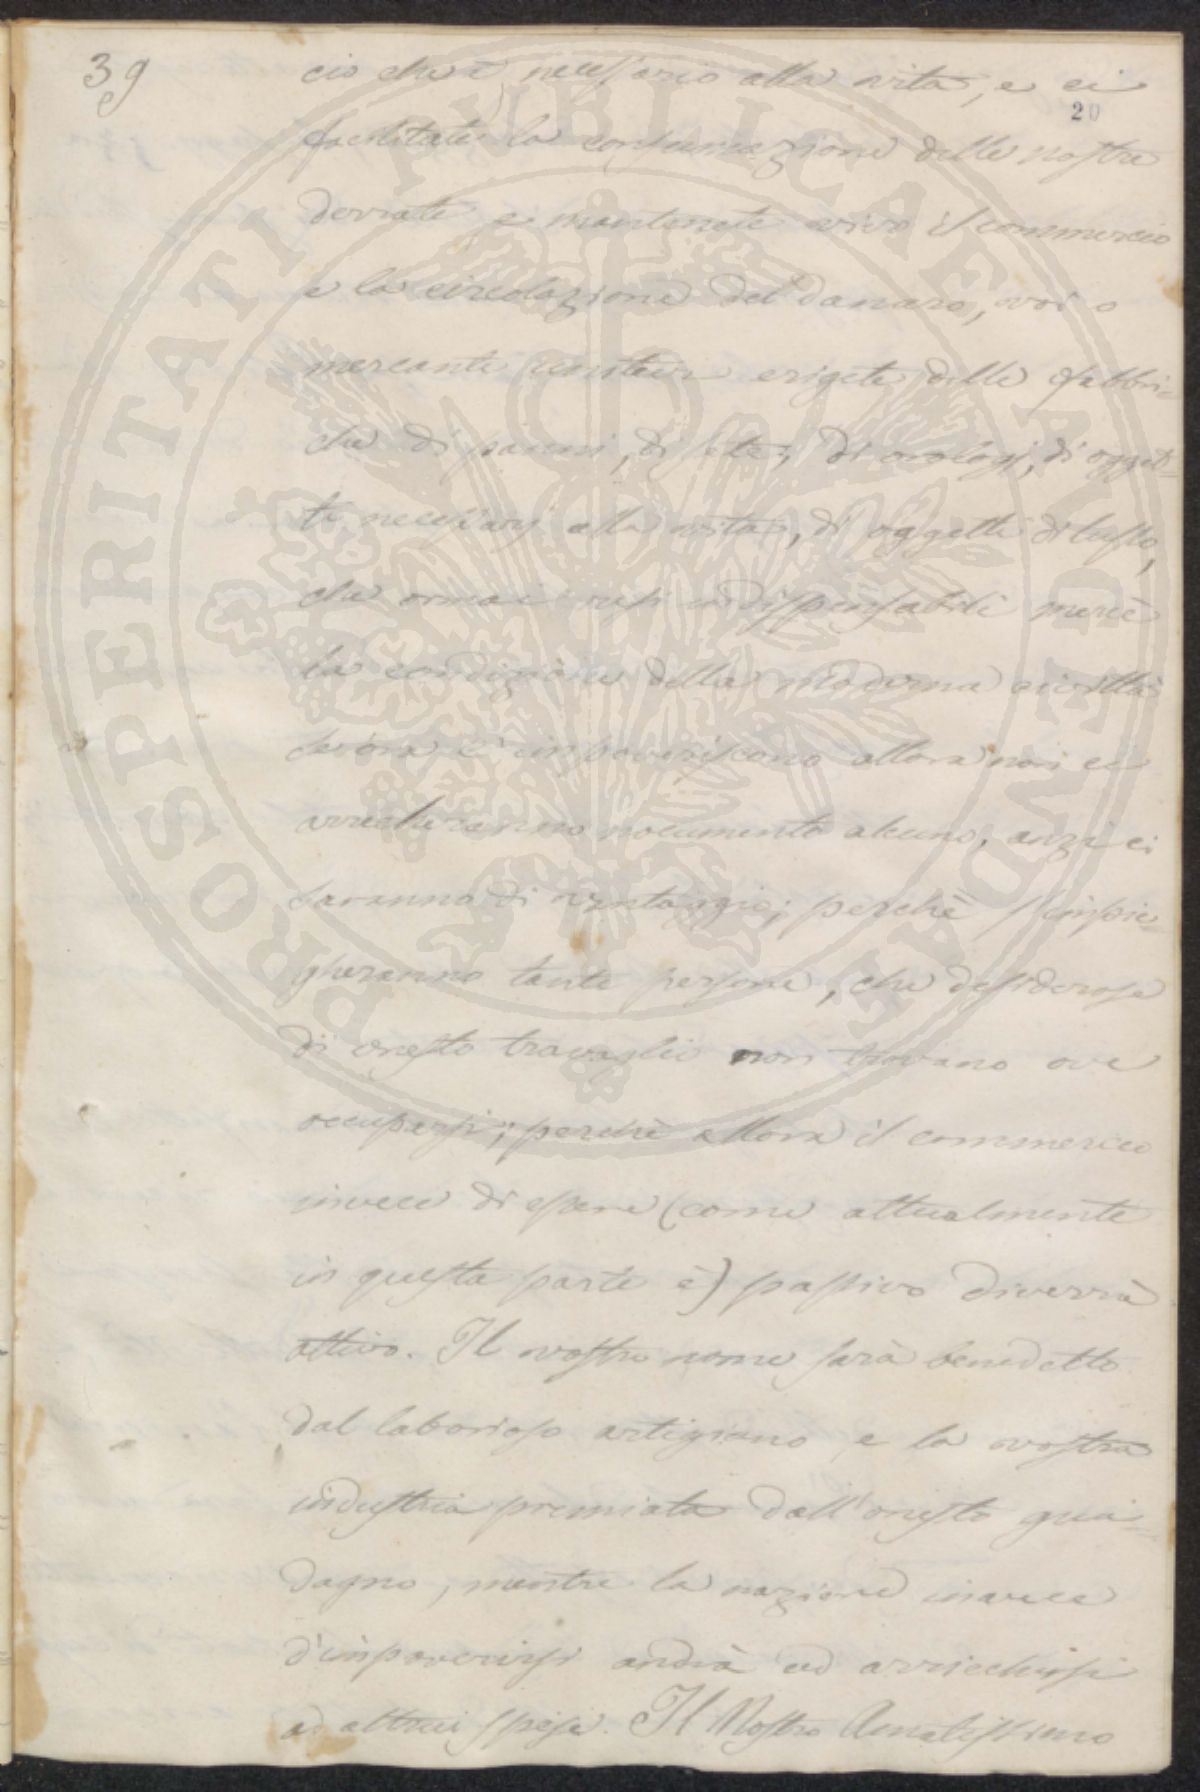 39
ciò che è necessario alla vita, e ci
20
facilitate la consumazione delle nostre
derrate e mantenete vivo il commercio
e la circolazione del danaro, voi o
mercanti unitevi erigete delle fabbri=
che di panni, di sete, di orologj, di ogget=
ti necessarj alla vita, di oggetti di lusso,
che ormai resi indispensabili mercè
la condizione della moderna civiltà
se ora c'impoveriscono allora non ci
arrecheranno nocumento alcuno, anzi ci
saranno di vantaggio; perchè s'impie=
gheranno tante persone, che desiderose
di onesto travaglio non trovano ove
occuparsi; perchè allora il commercio
invece di essere (come attualmente
in questa parte è) passivo diverrà
attivo. Il vostro nome sarà benedetto
dal laborioso artigiano e la vostra
industria premiata dall'onesto gua=
dagno, mentre la nazione invece
d'impoverirsi andrà ad arricchirsi
ad altrui spese. Il Nostro Amatissimo
PROSPERITATI PVBLICAE AVGENDAE